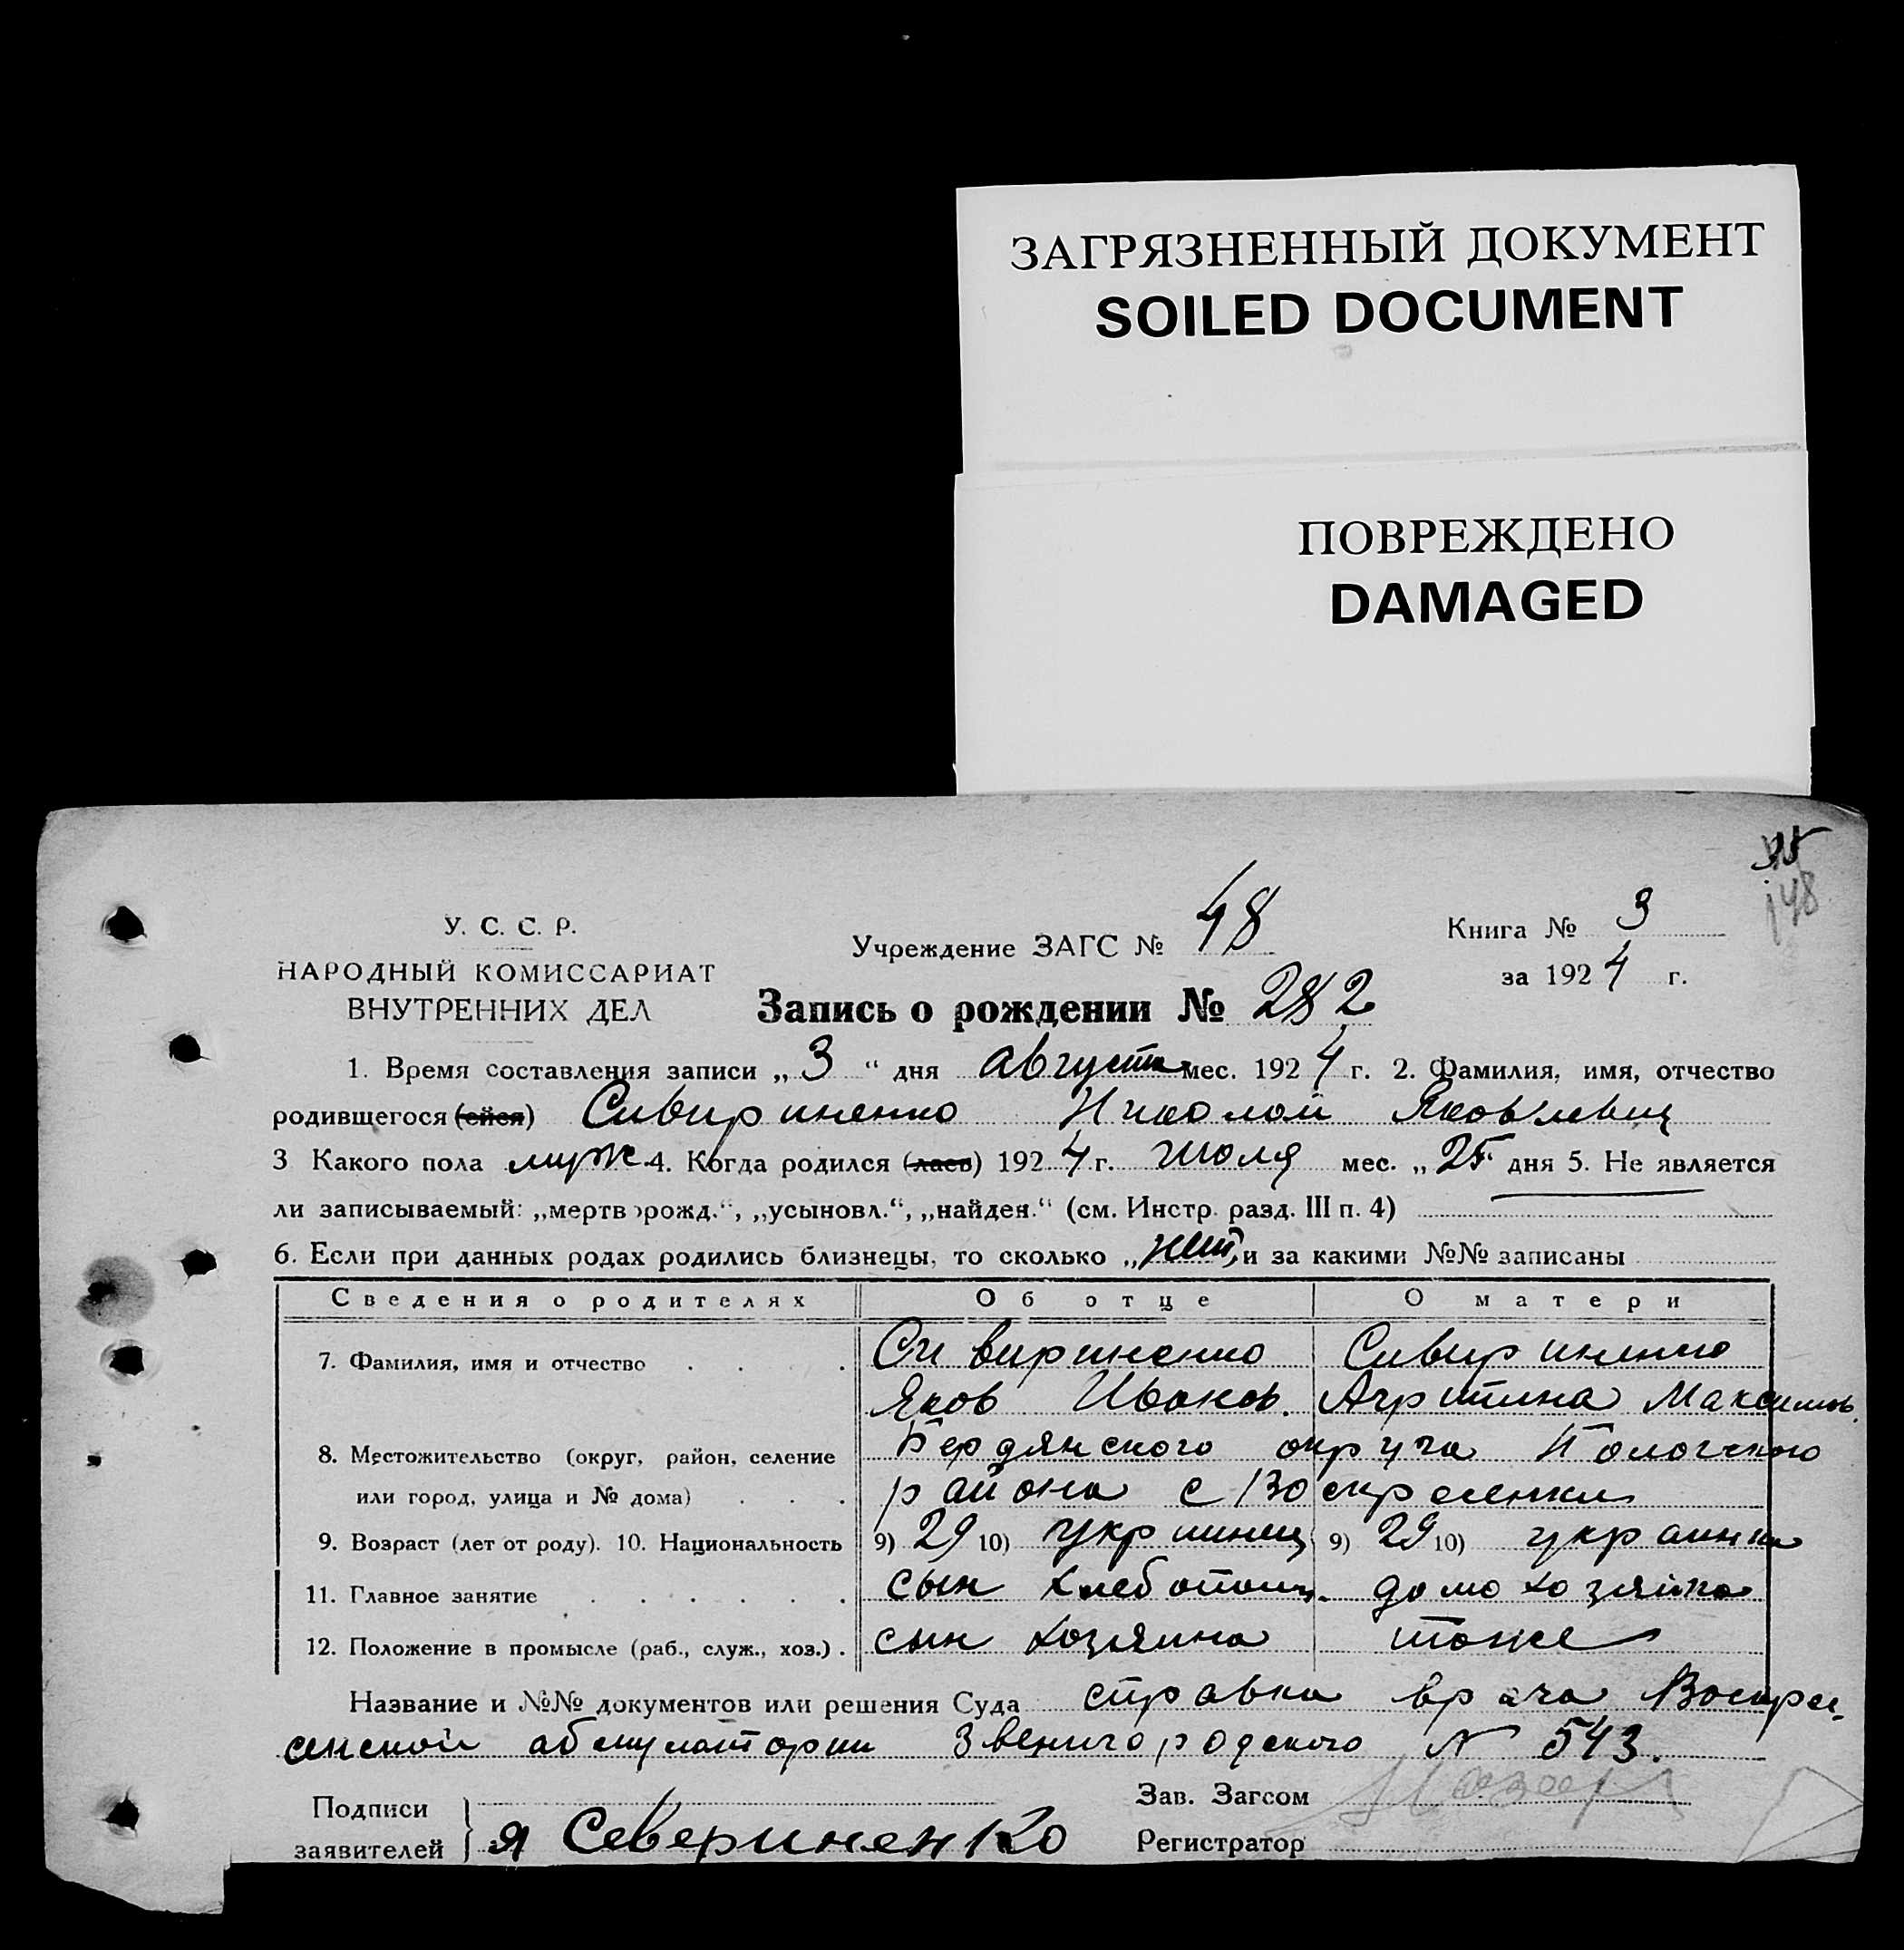 ЗАГРЯЗНЕННЫЙ ДОКУМЕНТ
SOILED DOCUMENT
ПОВРЕЖДЕНО
DAMAGED
У. С. С. Р.
НАРОДНЫЙ КОМИССАРИАТ
ВНУТРЕННИХ ДЕЛ
Учреждение ЗАГС № 48
Книга № 3
за 1924 г.
Запись о рождении № 282
1. Время составления записи „3“ дня августа мес. 1924 г. 2. Фамилия, имя, отчество
родившегося (ейся) Сивириненко Николай Яковлевич
3 Какого пола муж. 4. Когда родился (лась) 1924 г. июля мес. „25“ дня 5. Не является
ли записываемый: „мертворожд.“, „усыновл.“, „найден.“ (см. Инстр. разд. III п. 4)
6. Если при данных родах родились близнецы, то сколько „нет“, и за какими №№ записаны
Сведения о родителях Об отце О матери
7. Фамилия, имя и отчество . . . . Сивириненко Сивириненко
Яков Иванов. Агритина Максимов.
8. Местожительство (округ, район, селение Бердянского округа Пологского
или город, улица и № дома) . . . района с Воскресенки
9. Возраст (лет от роду). 10. Национальность 9) 29 10) украинец 9) 29 10) украинка
11. Главное занятие . . . . . . сын хлебопашц. домохозяйка
12. Положение в промысле (раб., служ., хоз.) . сын хозяина тоже
Название и №№ документов или решения Суда справка врача Воскре-
сенской абмулатории Звенигородского N 543.
Подписи
заявителей я Севериненко
Зав. Загсом
Регистратор